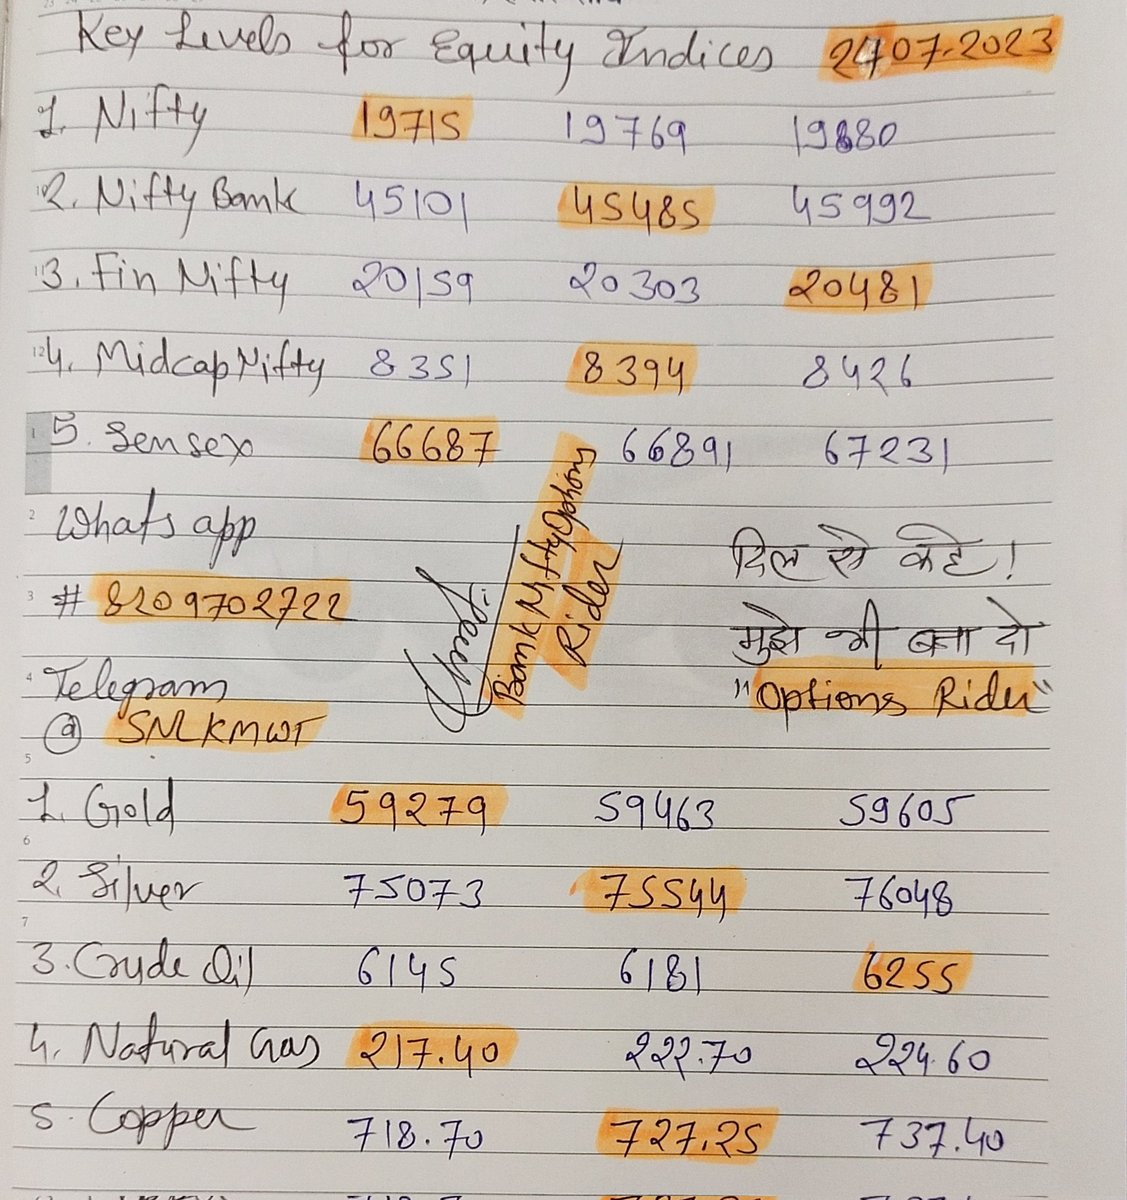 Key Levels for Equity Indices 24.07.2023
1. Nifty 19715 19769 19880
2. Nifty Bank 45101 45485 45992
3. Fin Nifty 20159 20303 20481
4. Midcap Nifty 8351 8394 8426
5. Sensex 66687 66891 67231
Whatsapp
# 8209702722
Telegram
@ SNLKMWT
Bank Nifty Options
Rider
दिल से कहे!
मुझे भी बना दो
"Options Rider"
1. Gold 59279 59463 59605
2. Silver 75073 75544 76048
3. Crude Oil 6145 6181 6255
4. Natural Gas 217.40 222.70 224.60
5. Copper 718.70 727.25 737.40